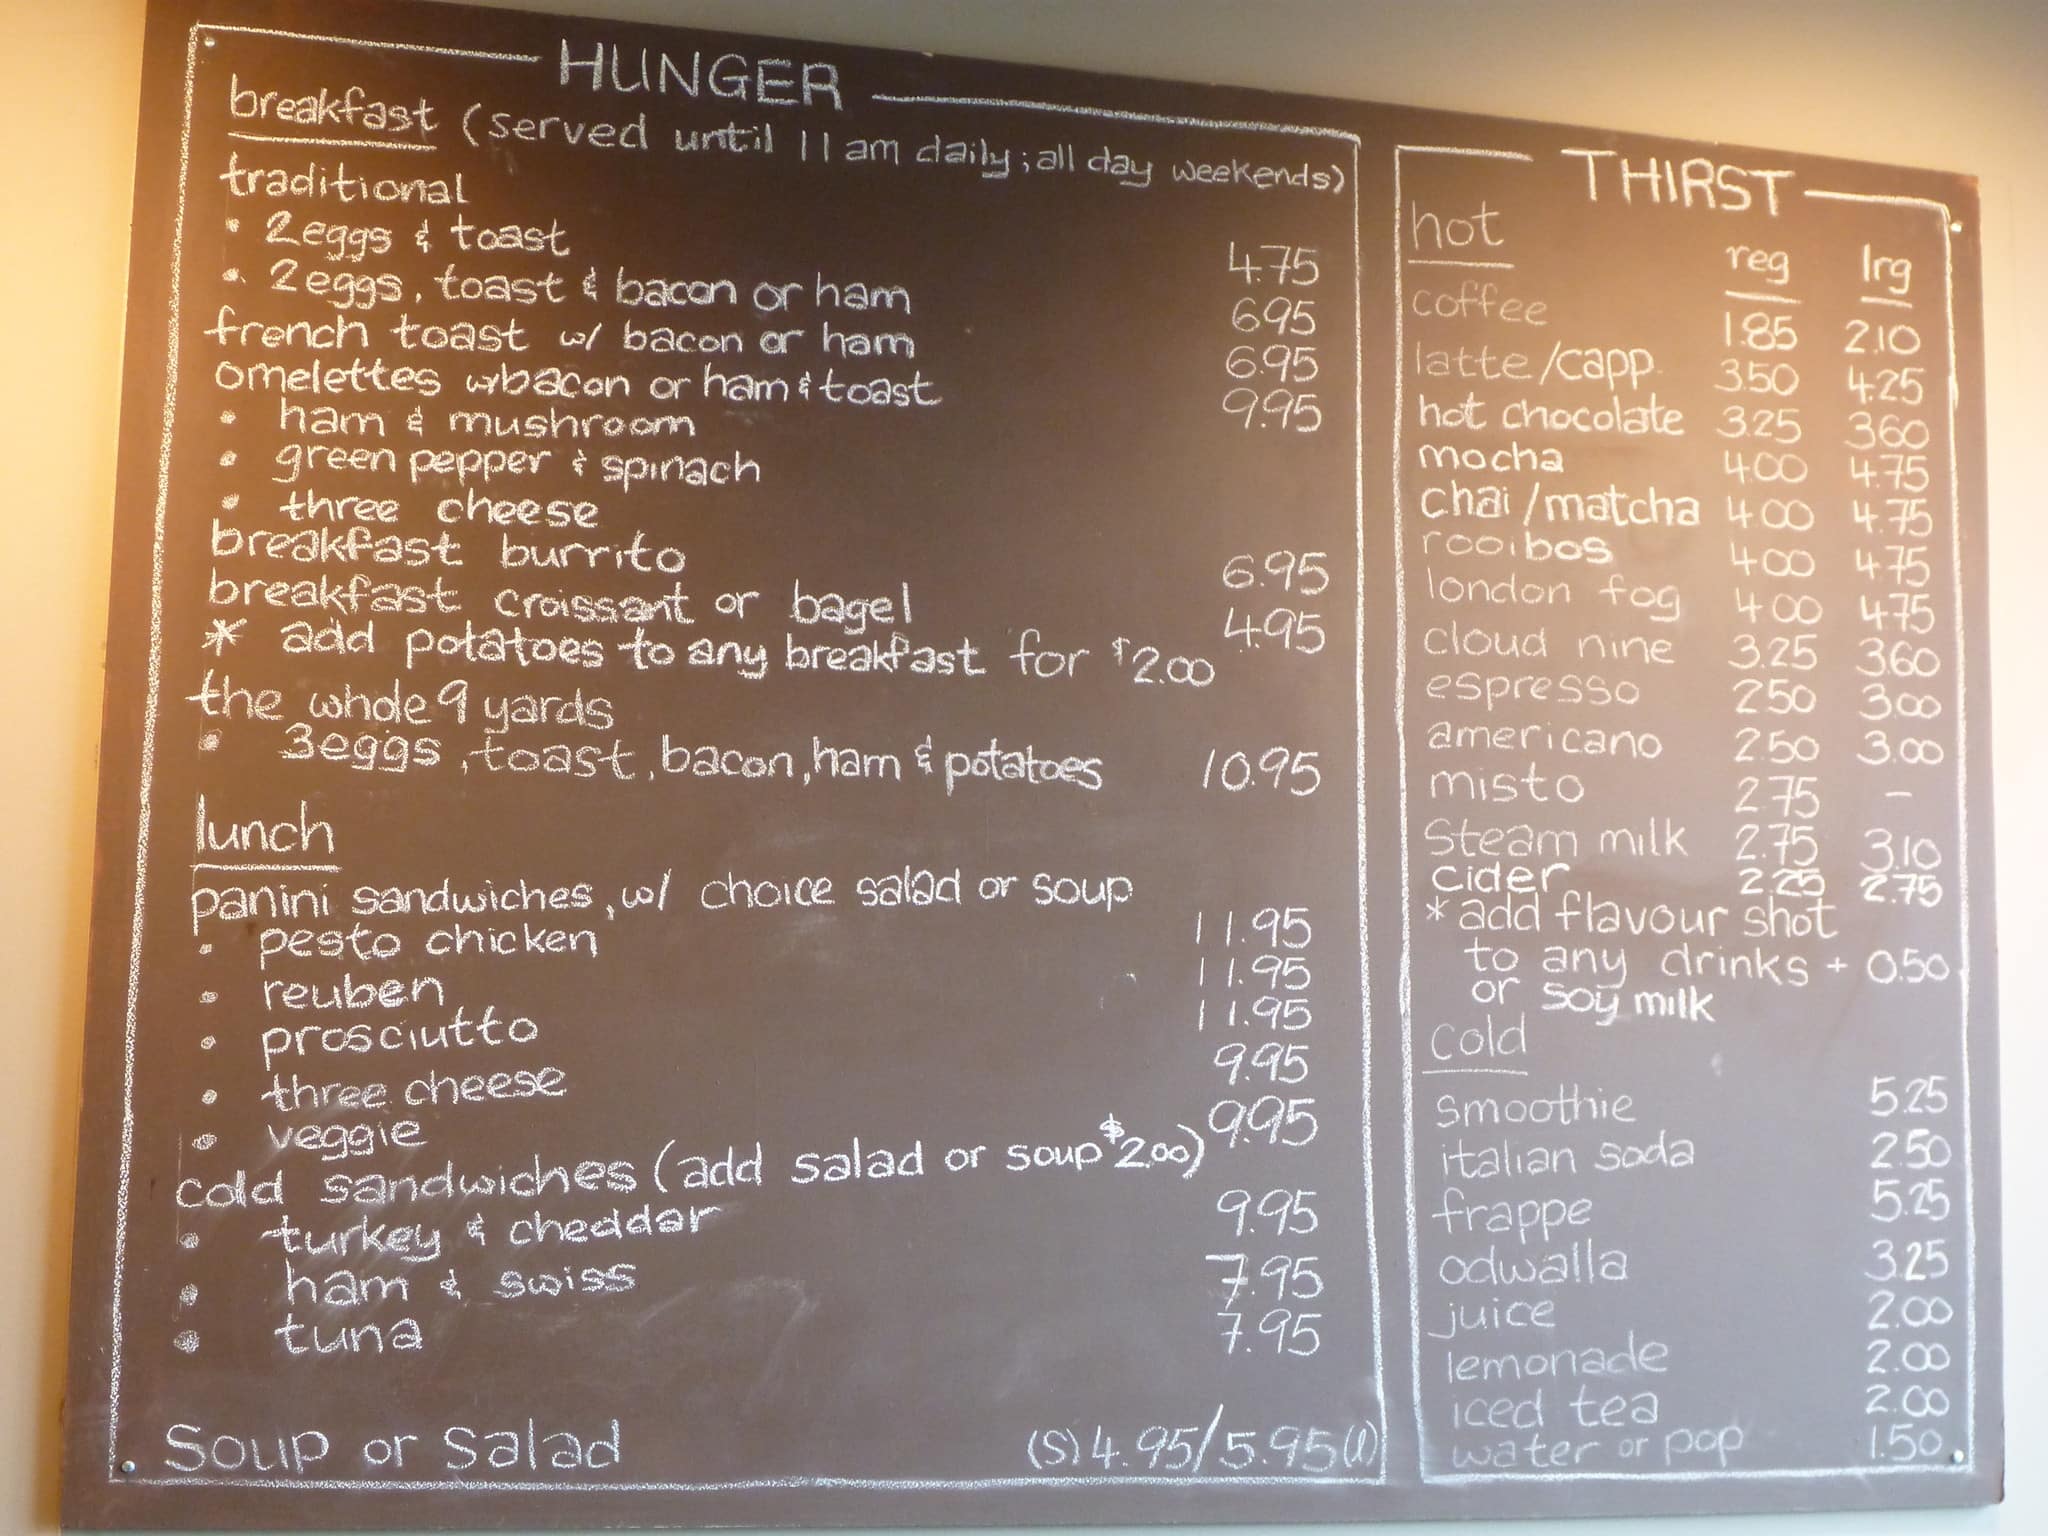 HUNGER
breakfast (served until 11 am daily; all day weekends)
traditional
• 2eggs & toast 4.75
• 2eggs, toast & bacon or ham 695
french toast w/ bacon or ham 6.95
omelettes w/bacon or ham & toast 9.95
• ham & mushroom
• green pepper & spinach
• three cheese
breakfast burrito 6.95
breakfast croissant or bagel 4.95
* add potatoes to any breakfast for $2.00
the whole 9 yards
• 3eggs, toast, bacon, ham & potatoes 10.95
lunch
panini sandwiches, w/ choice salad or soup
• pesto chicken 11.95
• reuben 11.95
• prosciutto 11.95
• three cheese 9.95
• veggie 9.95
cold sandwiches (add salad or soup $2.00)
• turkey & cheddar 9.95
• ham & swiss 7.95
• tuna 7.95
Soup or Salad (S) 4.95/5.95(l)
THIRST
hot reg lrg
coffee 1.85 2.10
latte/capp. 3.50 4.25
hot chocolate 3.25 360
mocha 4.00 4.75
chai/matcha 4.00 4.75
rooibos 400 4.75
london fog 400 475
cloud nine 3.25 3.60
espresso 250 3.00
americano 2.50 3.00
misto 2.75 –
Steam milk 2.75 3.10
cider 2.25 2.75
* add flavour shot
to any drinks + 0.50
or soy milk
cold
smoothie 5.25
italian soda 2.50
frappe 5.25
odwalla 3.25
juice 2.00
lemonade 2.00
iced tea 2.00
water or pop 1.50